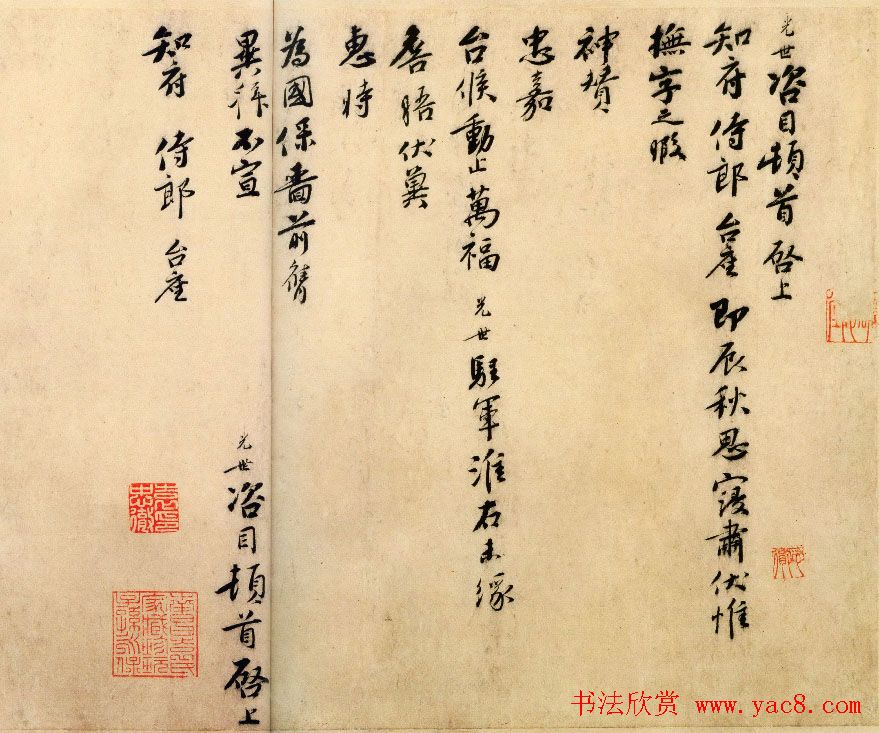 光世咨目頓首啓上
知府侍郎台座即辰秋思寖肅伏惟
撫字之暇
神賛
忠嘉
台候動止萬福光世駐軍淮右未緣
詹晤伏冀
惠時
為國保嗇前膺
異拜不宣
光世咨目頓首啓上
知府侍郎台座
袁忠徹印
书法欣赏 www.yac8.com